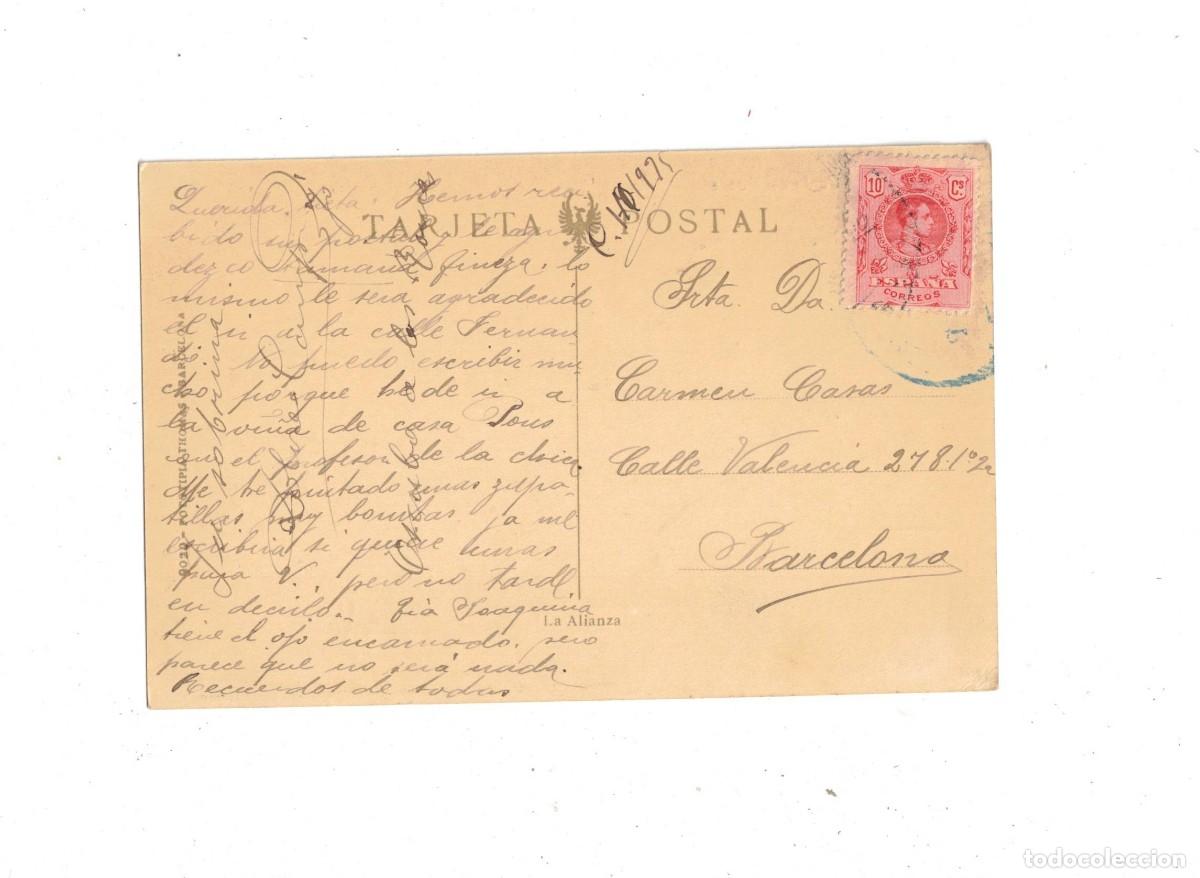 TARJETA POSTAL
Querida tía: Hemos reci
bido su postal y le agra
dezco tamaña fineza. lo
mismo le será agradecido
el ir a la calle Fernan
do. No puedo escribir mu
cho porque he de ir a
la viña de casa Pous
con el profesor de la chica
Me he pintado unas zapa-
tillas muy bonitas ya me
escribirá si quiere unas
para V. pero no tarde
en decirlo.. tía Joaquina
tiene el ojo encarnado, pero
parece que no será nada.
Recuerdos de todas
su sobrina
Srta. Da.
Carmen Casas
Calle Valencia 278.1º2ª
Barcelona
10 Cs
ESPAÑA
CORREOS
THOMAS BARCELONA
La Alianza
todocoleccion